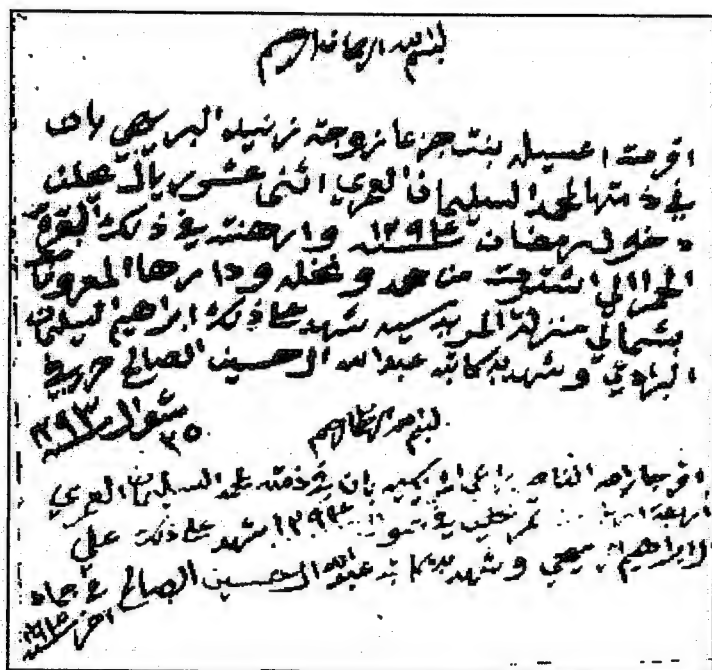 بسم الله الرحمن الرحيم
اقرت اعسيله بنت جزعا زوجة زنيد البريهي بان
في ذمتها لحمد السليمان العمري اثنا عشر ريال يحلن
دخول رمضان سنة ١٢٩٤ وارهنته في ذلك البقرة
الحمرا الي اشترت من حمد ونخله ودارها المعروفة
بشمالي منزلة المريدسيه شهد على ذلك ابراهيم السليمان
البادي وشهد به كاتبه عبدالله الحسين الصالح حرر في
٢٥ شوال سنة ١٢٩٣
بسم الله الرحمن الرحيم
اقر جارالله الناصر بان في ذمته لحمد السليمان العمري
اربعة تمر يحلن في شوال ١٢٩٤ شهد على ذلك علي
الابراهيم وشهد به كاتبه عبدالله الحسين الصالح في جماد
اخر سنة